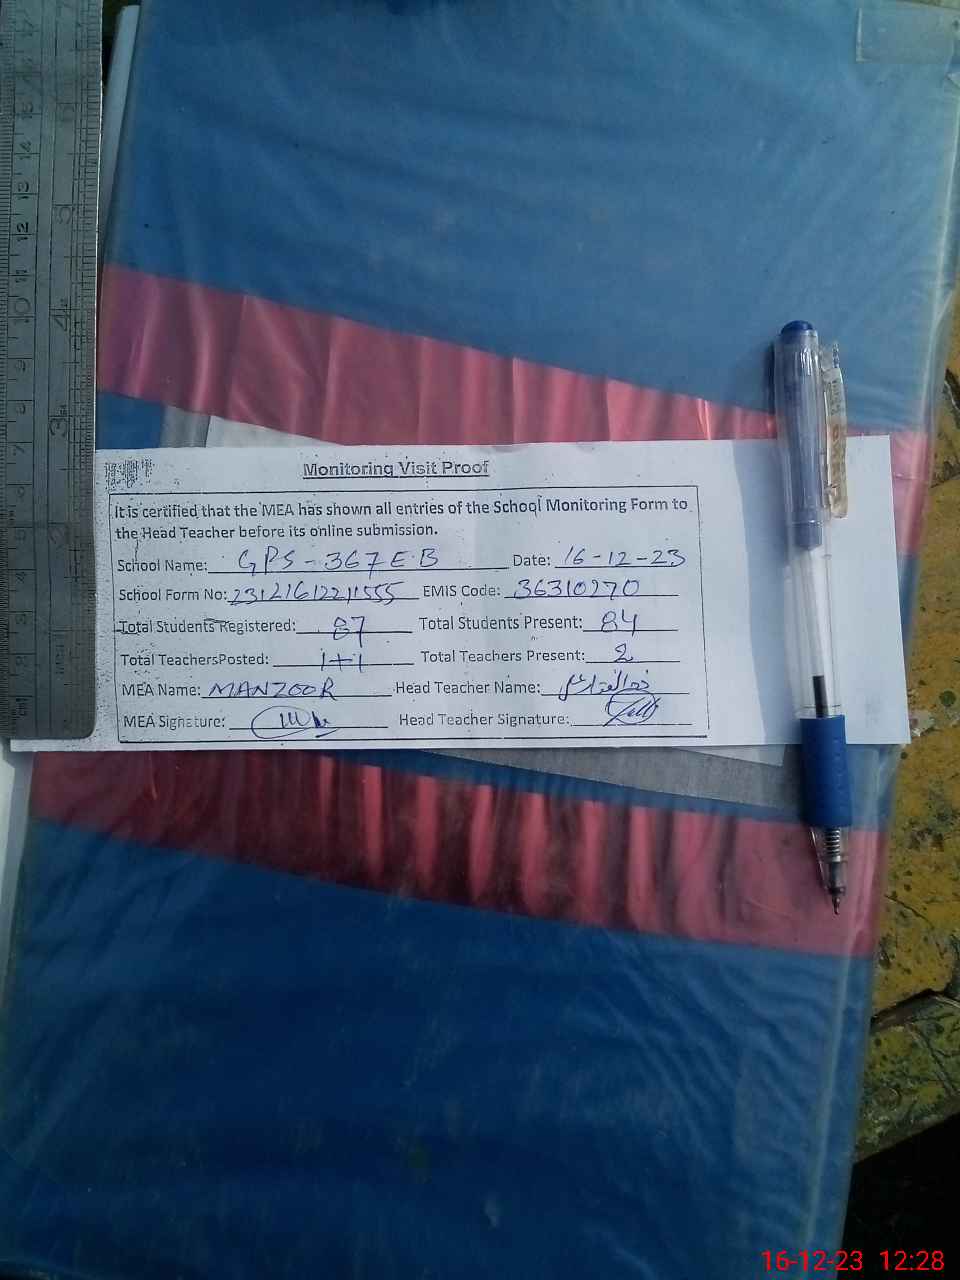 Monitoring Visit Proof
It is certified that the MEA has shown all entries of the School Monitoring Form to
the Head Teacher before its online submission.
School Name: GPS-367E.B Date: 16-12-23
School Form No: EMIS Code: 36310270
Total Students Registered: 87 Total Students Present: 84
Total TeachersPosted: 1+1 Total Teachers Present: 2
MEA Name: MANZOOR Head Teacher Name:
MEA Signature: Head Teacher Signature:
16-12-23 12:28